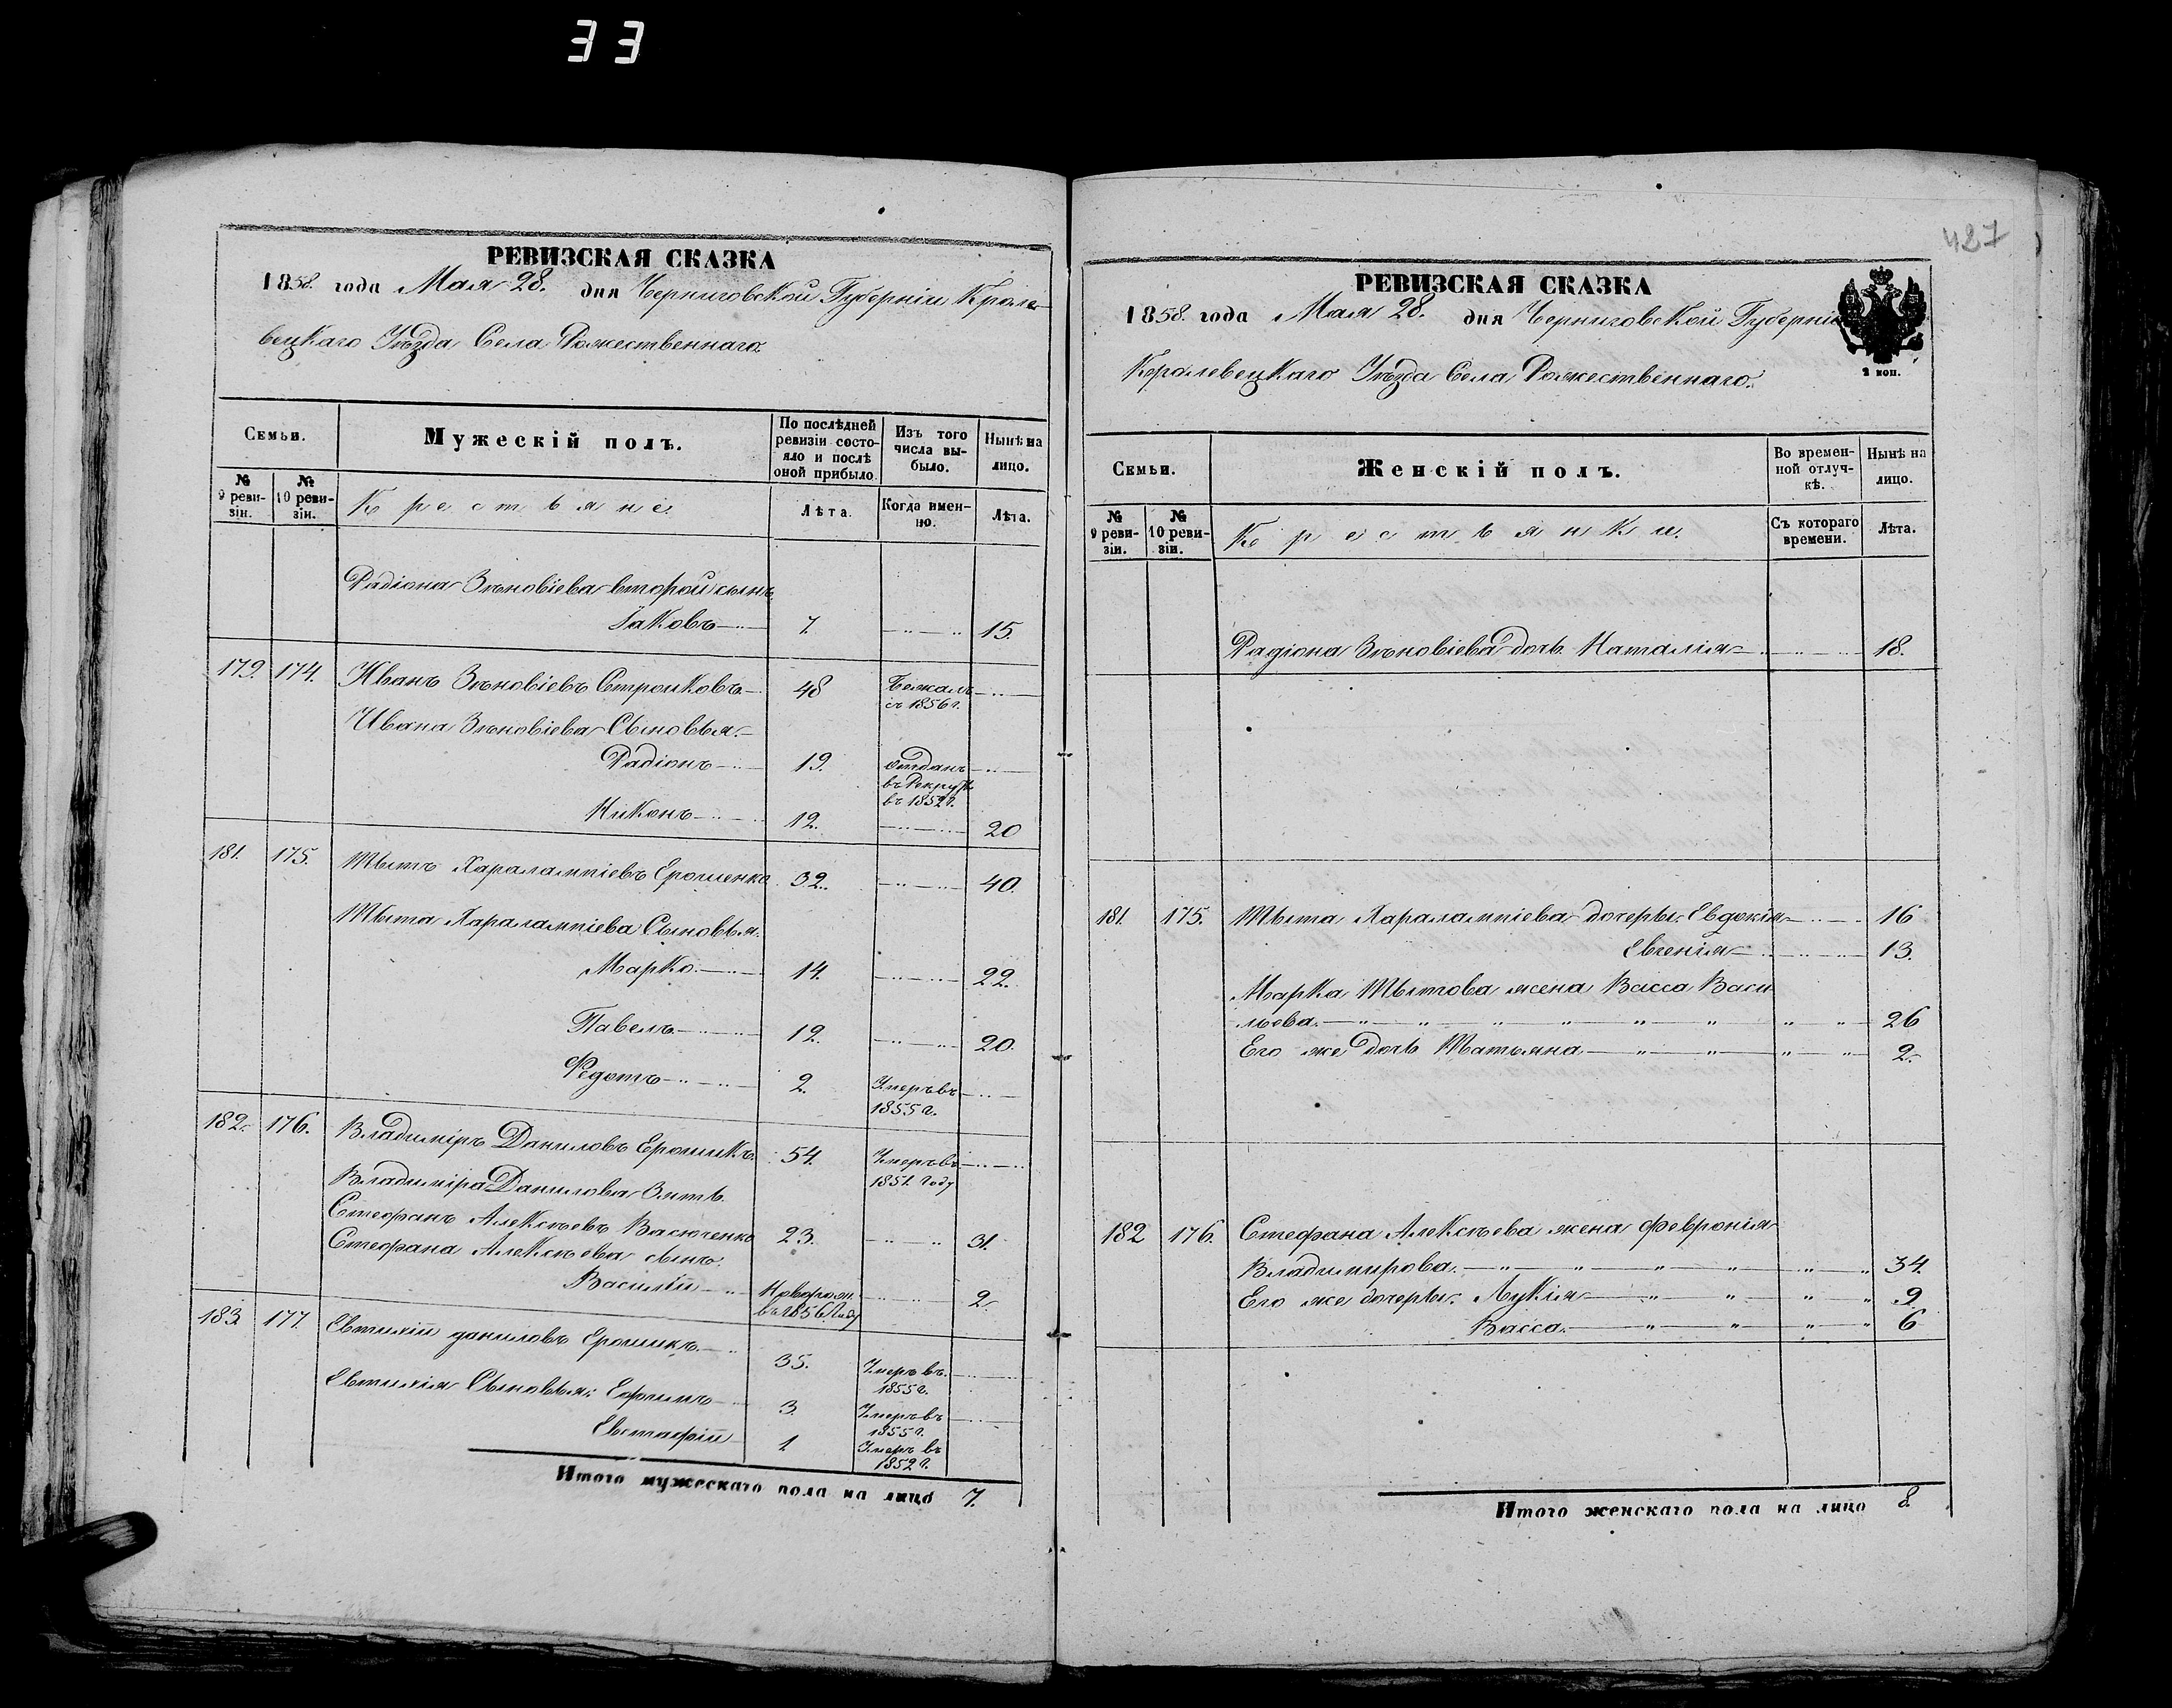 33
РЕВИЗСКАЯ СКАЗКА
1858. года Мая 28. дня Черниговской Губерніи Кроле-
вецкаго Уѣзда Села Рожественнаго.
Семьи.
Мужескій полъ.
По послѣдней ревизіи состояло и послѣ оной прибыло.
Изъ того числа выбыло.
Нынѣ на лицо.
№ 9 ревизіи.
№ 10 ревизіи.
Крестьяне.
Лѣта.
Когда именно.
Лѣта.
Радіона Зѣновіева второй сынъ
Іаковъ 7. 15.
179. 174. Иванъ Зѣновіевъ 48 Бежалъ
съ 1856 г.
Ивана Зѣновіева Сыновья.
Радіонъ 19. отданъ
въ Рекруты
въ 1852 г.
Никонъ 12. 20
181. 175. Тытъ Харалампіевъ Ерошенко 32. 40.
Тыта Харалампіева Сыновья.
Марко. 14. 22.
Павелъ 12. 20.
Федотъ 2. Умеръ въ
1855 г.
182. 176. Владиміръ Даниловъ Ерошикъ. 54. Умеръ въ
1851. Году
Владиміра Данилова Зять.
Стефанъ Алексѣевъ Васюченко 23. 31.
Стефана Алексѣева сынъ.
Василій Новорожд. 2
въ 1856. Году
183. 177. Евтихій даниловъ Ерошикъ. 35. Умеръ въ.
1855 г.
Евтихія Сыновья: Ефимъ 3. Умеръ въ
1855 г.
Евстафій 1 Умеръ въ
1852 г.
Итого мужескаго пола на лицо 7.
427
РЕВИЗСКАЯ СКАЗКА
1858. года Мая 28. дня Черниговской Губерніи
Королевецкаго Уѣзда Села Рожественнаго.
2 коп.
Семьи.
Женскій полъ.
Во временной отлучкѣ.
Нынѣ на лицо.
№ 9 ревизіи.
№ 10 ревизіи.
Крестьянки.
Съ котораго времени.
Лѣта.
Радіона Зѣновіева дочь Наталія 18.
181. 175. Тыта Харалампіева дочери: Евдокія 16
Евгенія 13.
Марка Тытова жена Васса Васи
льева. 26
Его же дочь Татьяна 2.
182 176. Стефана Алексѣева жена Февронія
Владимирова. 34.
Его же дочери: Лукія 9
Васса. 6
Итого женскаго пола на лицо 8.